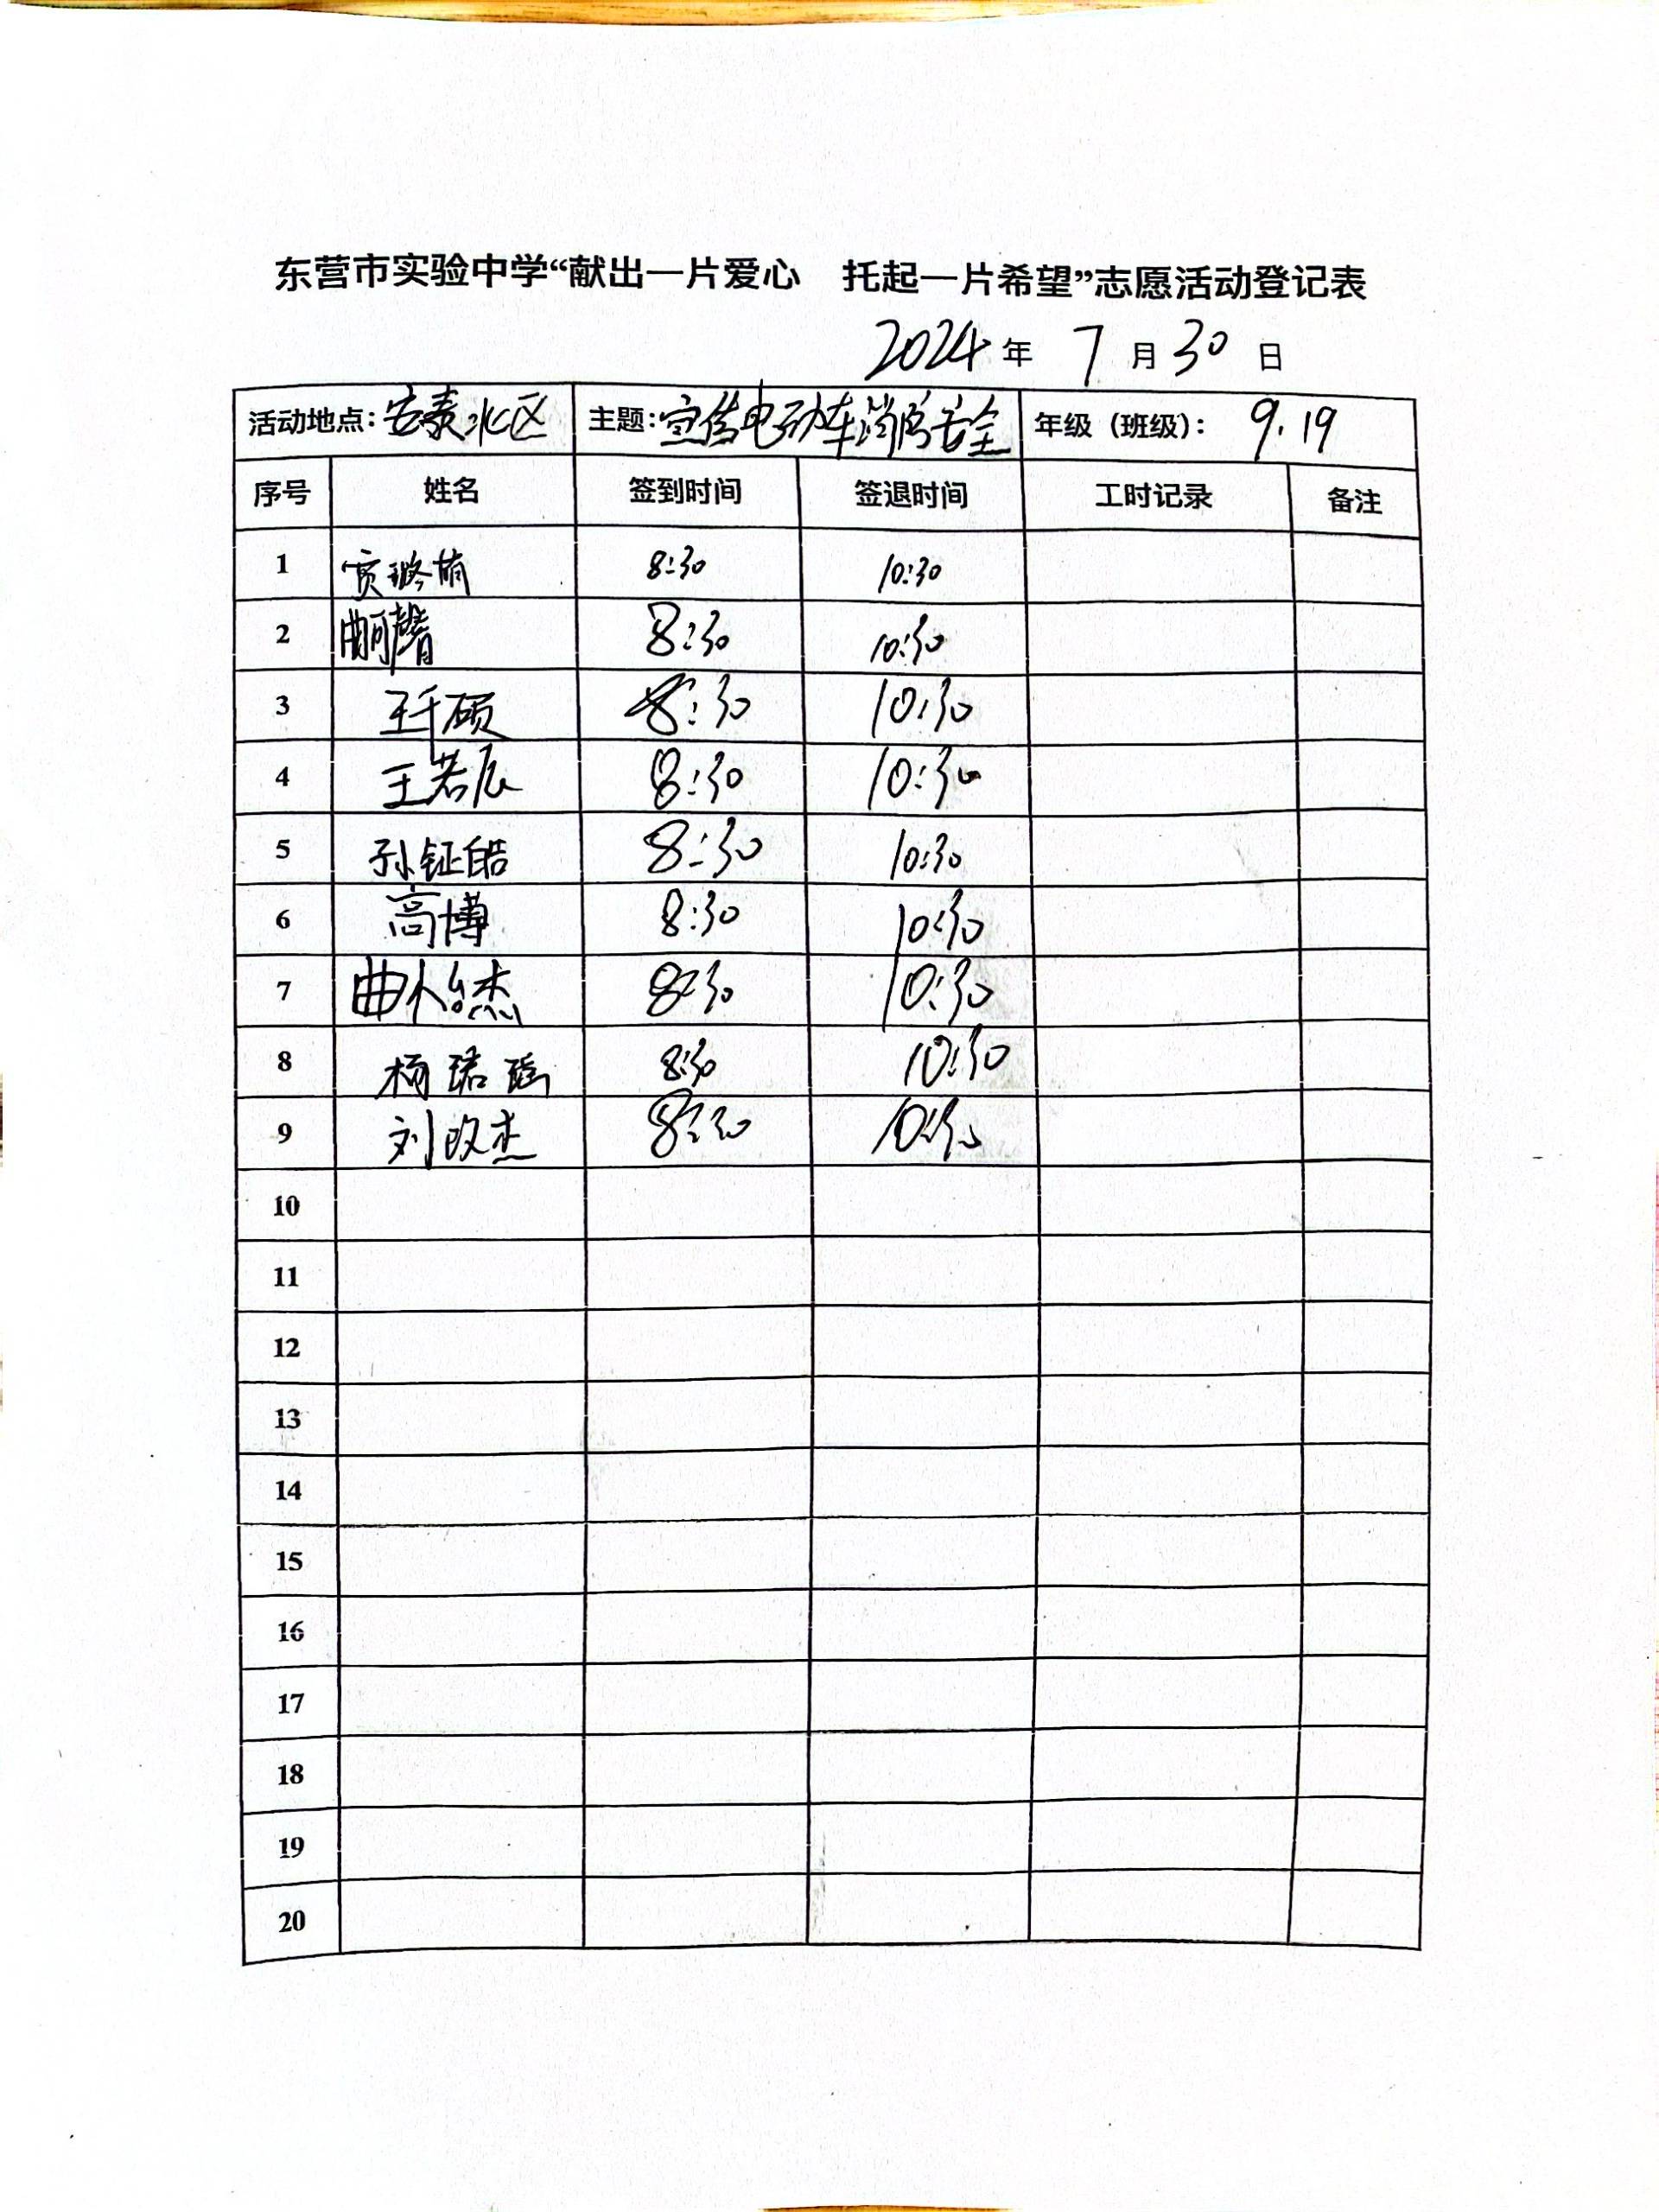 东营市实验中学“献出一片爱心 托起一片希望”志愿活动登记表
2024年 7月30日
活动地点：安泰北区 主题：宣传电动车消防安全 年级（班级）： 9.19
序号 姓名 签到时间 签退时间 工时记录 备注
1 贾璐萌 8:30 10:30
2 曲可馨 8:30 10:30
3 王千硕 8:30 10:30
4 王若辰 8:30 10:30
5 孙钲皓 8:30 10:30
6 高博 8:30 10:30
7 曲 杰 8:30 10:30
8 杨珺瑶 8:30 10:30
9 刘政杰 8:30 10:30
10
11
12
13
14
15
16
17
18
19
20